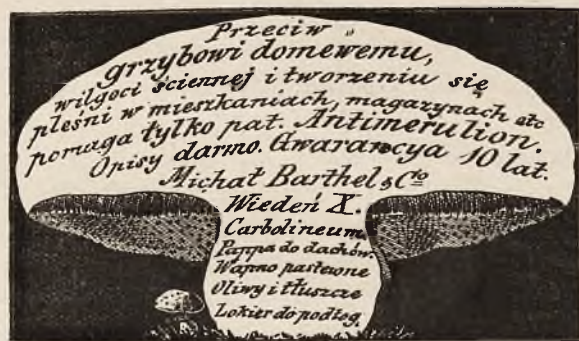 Przeciw
grzybowi domewemu,
wilgoci sciennej i tworzeniu się
pleśni w mieszkaniach, magazynach etc
pomaga tylko pat. Antimerulion.
Opisy darmo. Gwarancya 10 lat.
Michał Barthel & Cto
Wiedeń X.
Carbolineum.
Pappa do dachów.
Wapno pastewne
Oliwy i tłuszcze
Lokier do podłog.